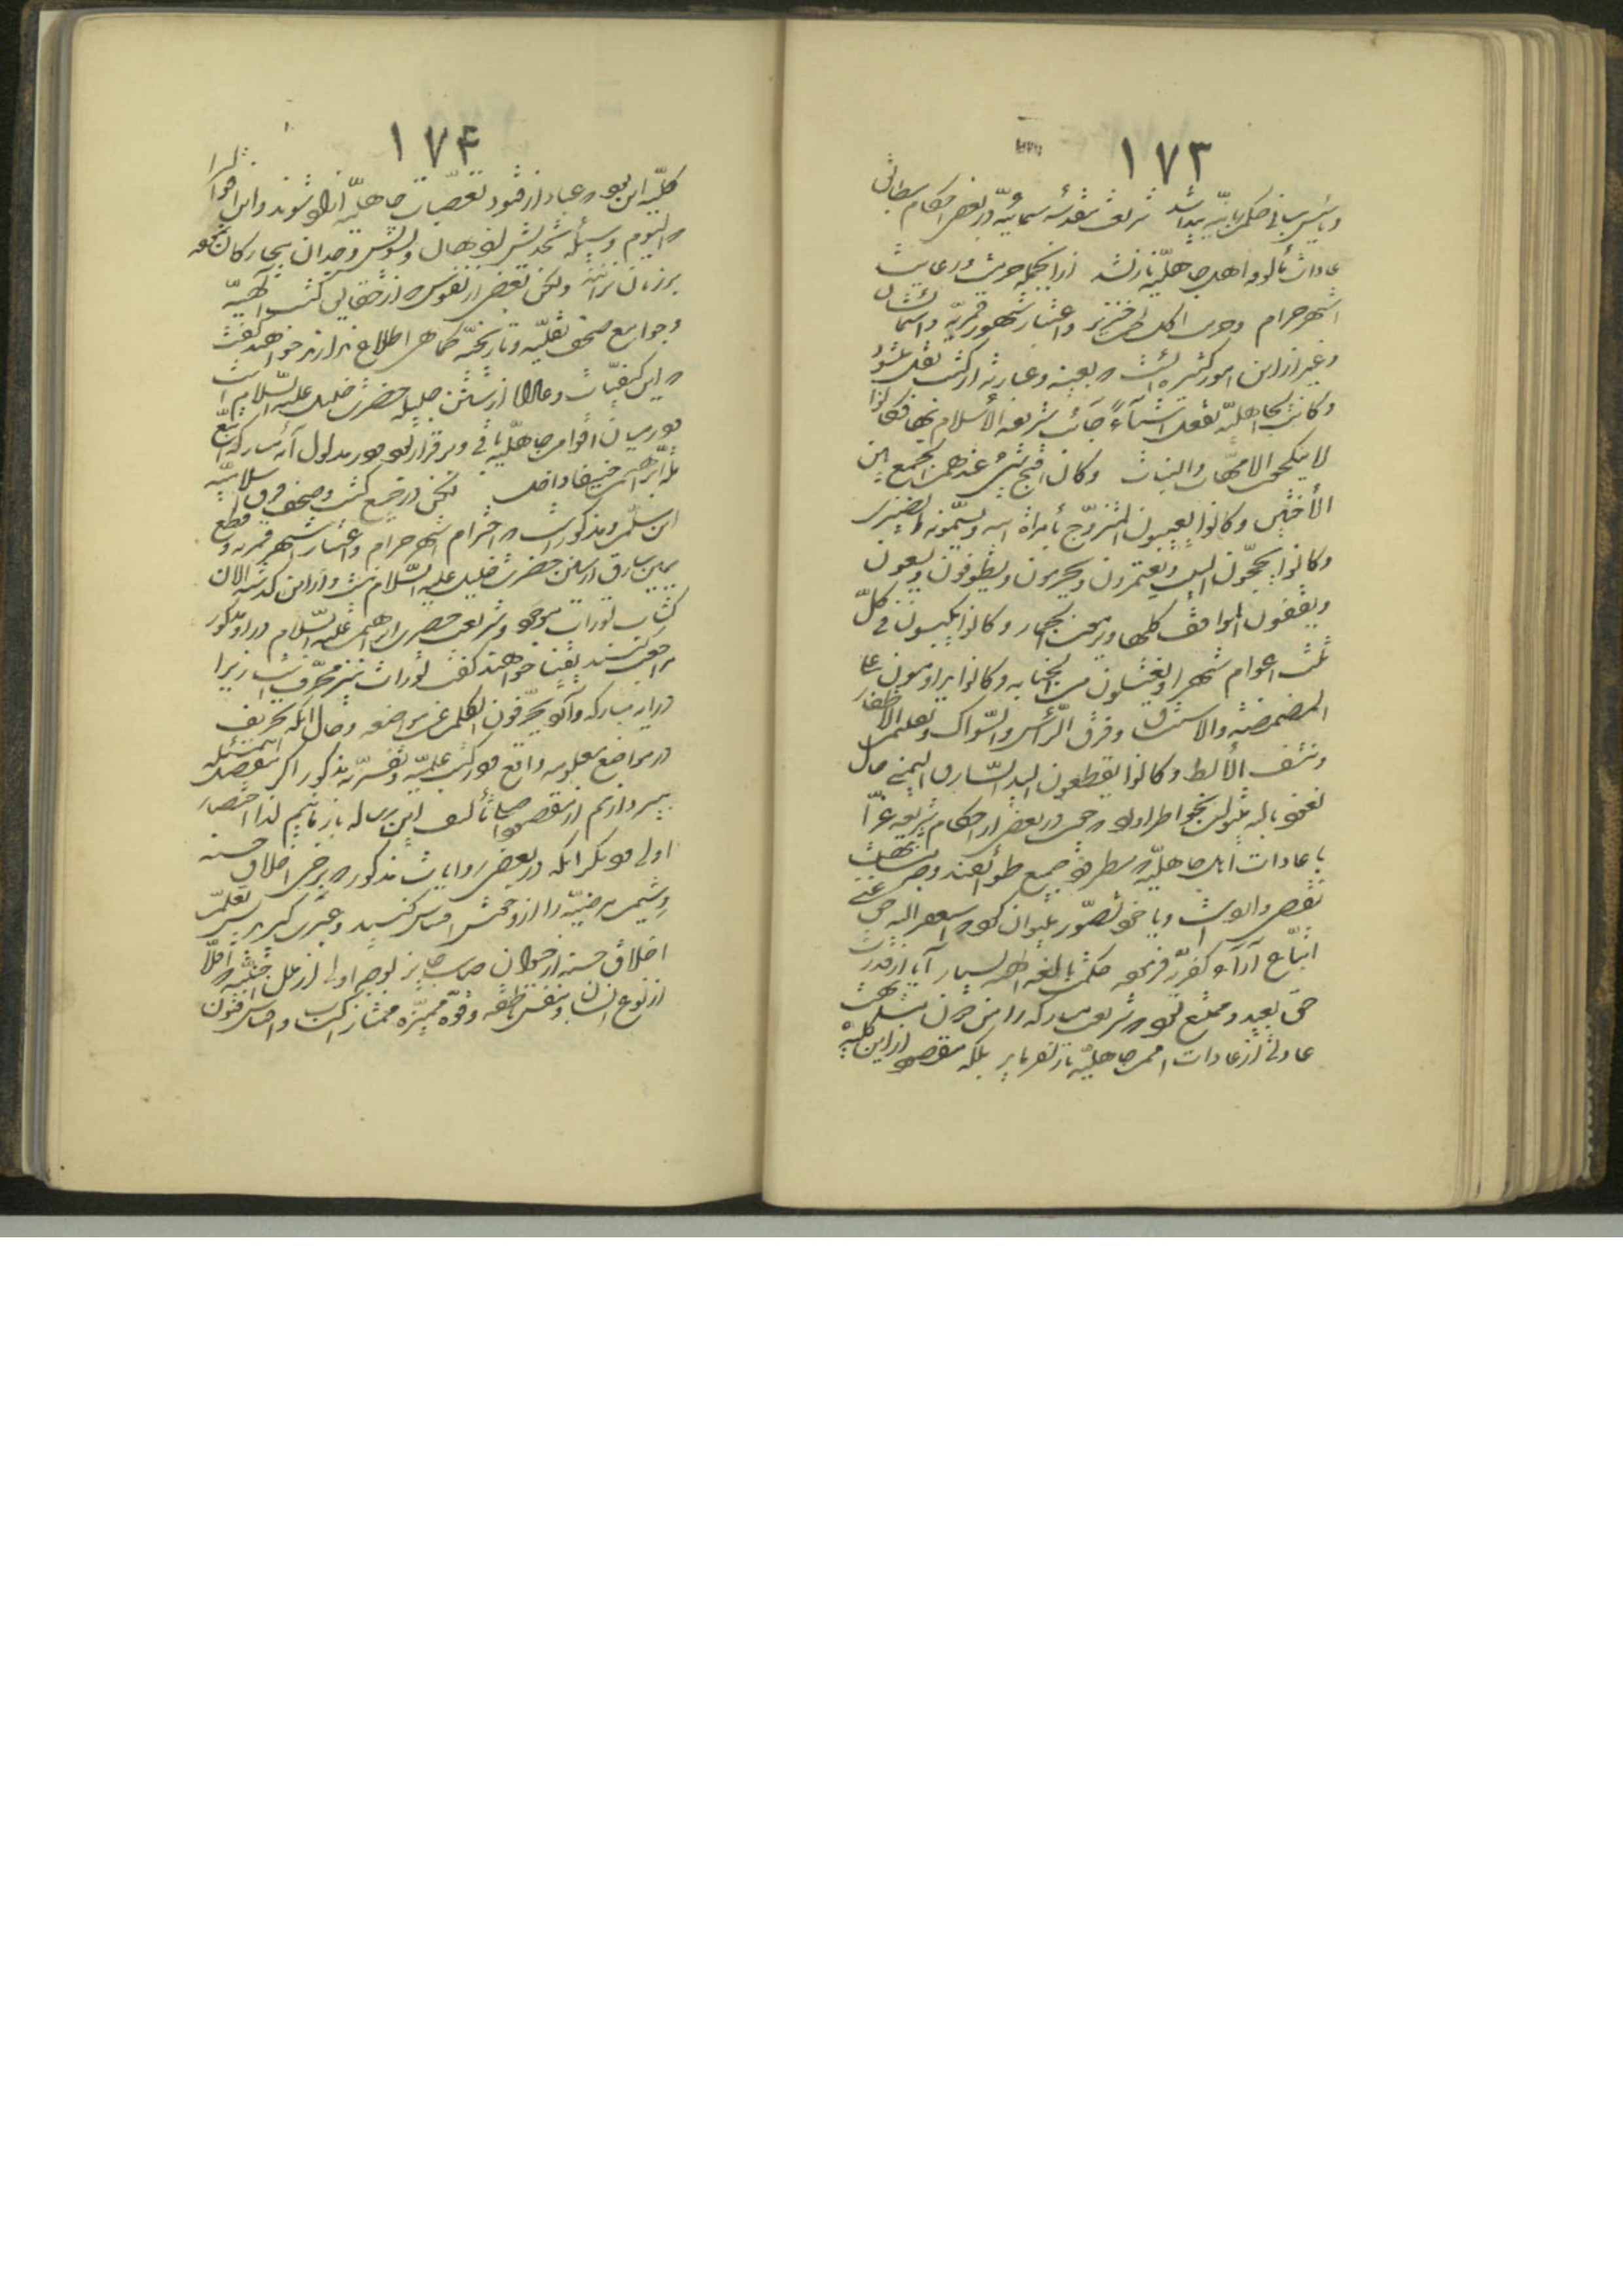 ١٧٣
و تأسیس مبانی حکمت ربانیه یید شد شریعت مقدسهٔ سمائیه در بعضی احکام مطابق
عادات مألوفه اهل جاهلیه نازل شد از آنجمله حرمت و رعایت
اشهر حرام و حرمت اکل لحم خنزیر و اعتبار شهور قمریه و اسمائشان
و غیر از این امور کثیره است که بعینه و عبارته از کتب نقل میشود
و کانت الجاهلیّة تفعل اشیآءً جآئت شریعة الاسلام بها فکانوا
لا ینکحون الامهات و البنات و کان اقبح شئ عندهم الجمع بین
الأختین و کانوا یعیبون المتزوّج بأمرأة ابیه و یسمّونه الضیزن
و کانوا یحجّون البیت و یعتمرون و یحرمون و یطوفون و یسعون
و یقفون المواقف کلها و یرمون الجمار و کانوا یکبسون فی کلّ
ثلث اعوام شهرا و یغتسلون من الجنابه و کانوا یداومون علی
المضمضة والاستنشاق و فرق الرّأس والسّواک و تقلیم الاظفار
و نتف الأبط و کانوا یقطعون الید السّارق الیمنی حال
نعوذ بالله میتوان بخواطر آورد که چون در بعضی از احکام شریعت غرّا
با عادات اهل جاهلیه که مطرود جمیع طوائفند وجه مشابهت
نقص وارد است و یا خود تصور میتوان نمود که استغفر الله حق غنی
اتّباع آرآء کفره فرموده حکمت بالغه الهیه بسیار آیا از قدرت
حق بعید و ممتنع بود که شریعت مبارکه را من دون مشابهت
عادتی از عادات امم جاهلیّه نازل فرماید بلکه مقصود از این حکمت
١٧۴
کلیّه این بود که عباد از قیود تعصّبات جاهلیّه آزاد شوند و این اقوال را
که الیوم وسیلهٔ تخدیش اذهان و تشویش وجدان بیچارگان نموده
بر زبان نرانند ولکن بعضی از نفوس که از حقایق کتب آلهیّه
و جوامع صحف نقلیّه و تاریخیّه کما هی اطلاع ندارند خواهند گفت
که این کیفیّات و حالات از سنن جلیله حضرت خلیل علیه السّلام است
که در میان اقوام جاهلیّه باقی و برقرار بود و در مدلول آیه مبارکه اتّبع
ملّة ابراهیم حنیفا داخل لکن در جمیع کتب و صحف فرق اسلامیّه
این مسلّم و مذکور است که احترام اشهر حرام و اعتبار شهر قمریه و قطع
یمین سارق از سنن حضرت خلیل علیه السّلام نیست و از این گذشته الان
کتاب تورات موجود و شریعت حضرت ابراهیم علیه السّلام در او مذکور
مراجعت کنند یقیناً خواهند گفت تورات نیز محرّف است زیرا
در آیه مبارکه وارد یحرّفون الکلم عن مواضعه و حال آنکه تحریف
در مواضع معلومه واقع و در کتب علمیّه و تفسیریّه مذکور اگر بتفصیل این مسئله
بپردازیم از مقصود اصلی تألیف این رساله باز مانیم لذا اختصار
اولی و دیگر آنکه در بعضی روایات مذکور که برخی اخلاق حسنه
و شیم مرضیّه را از وحوش اقتباس کنید و عبرت گیرید پس تعلّم
اخلاق حسنه از حیوان صامت جایز بوجه اولی از ملل اجنبیّه که اقلّا
از نوع انسان و بنفس ناطقه و قوّه ممیّزه ممتازند اکتساب و اقتباس فنون